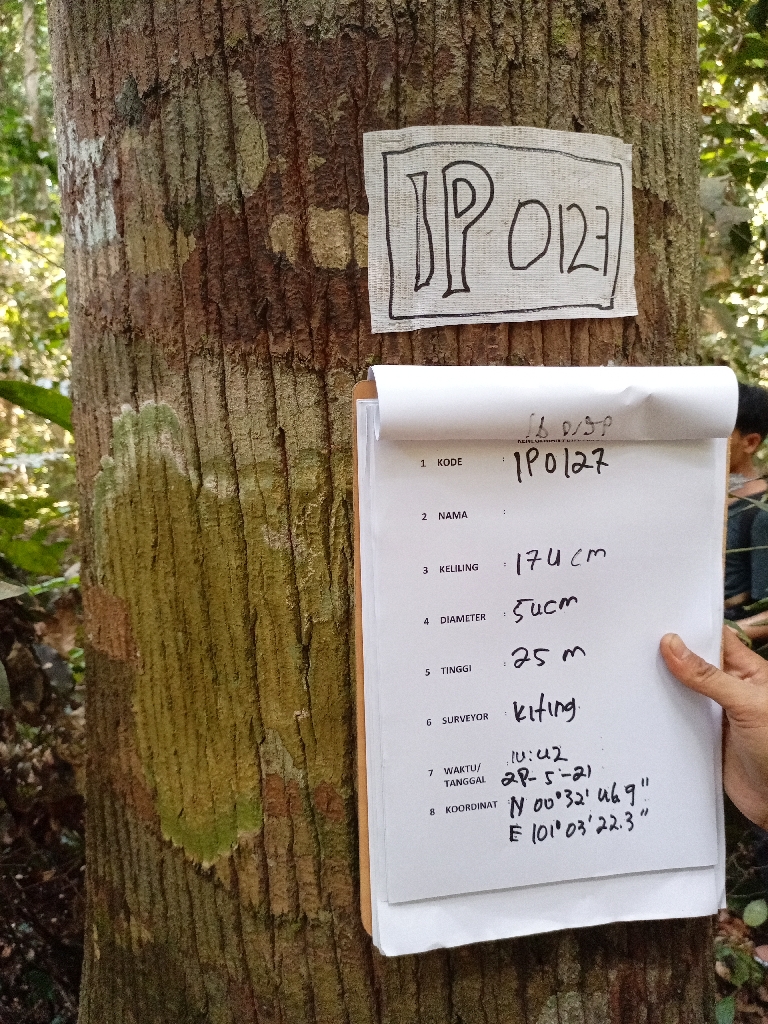 IP 0127
1 KODE : IP0127
2 NAMA :
3 KELILING : 174 cm
4 DIAMETER : 54cm
5 TINGGI : 25 m
6 SURVEYOR : kifing
7 WAKTU/ 14:42
TANGGAL
8 KOORDINAT N 00°32' 46.9"
E 101°03'22.3"